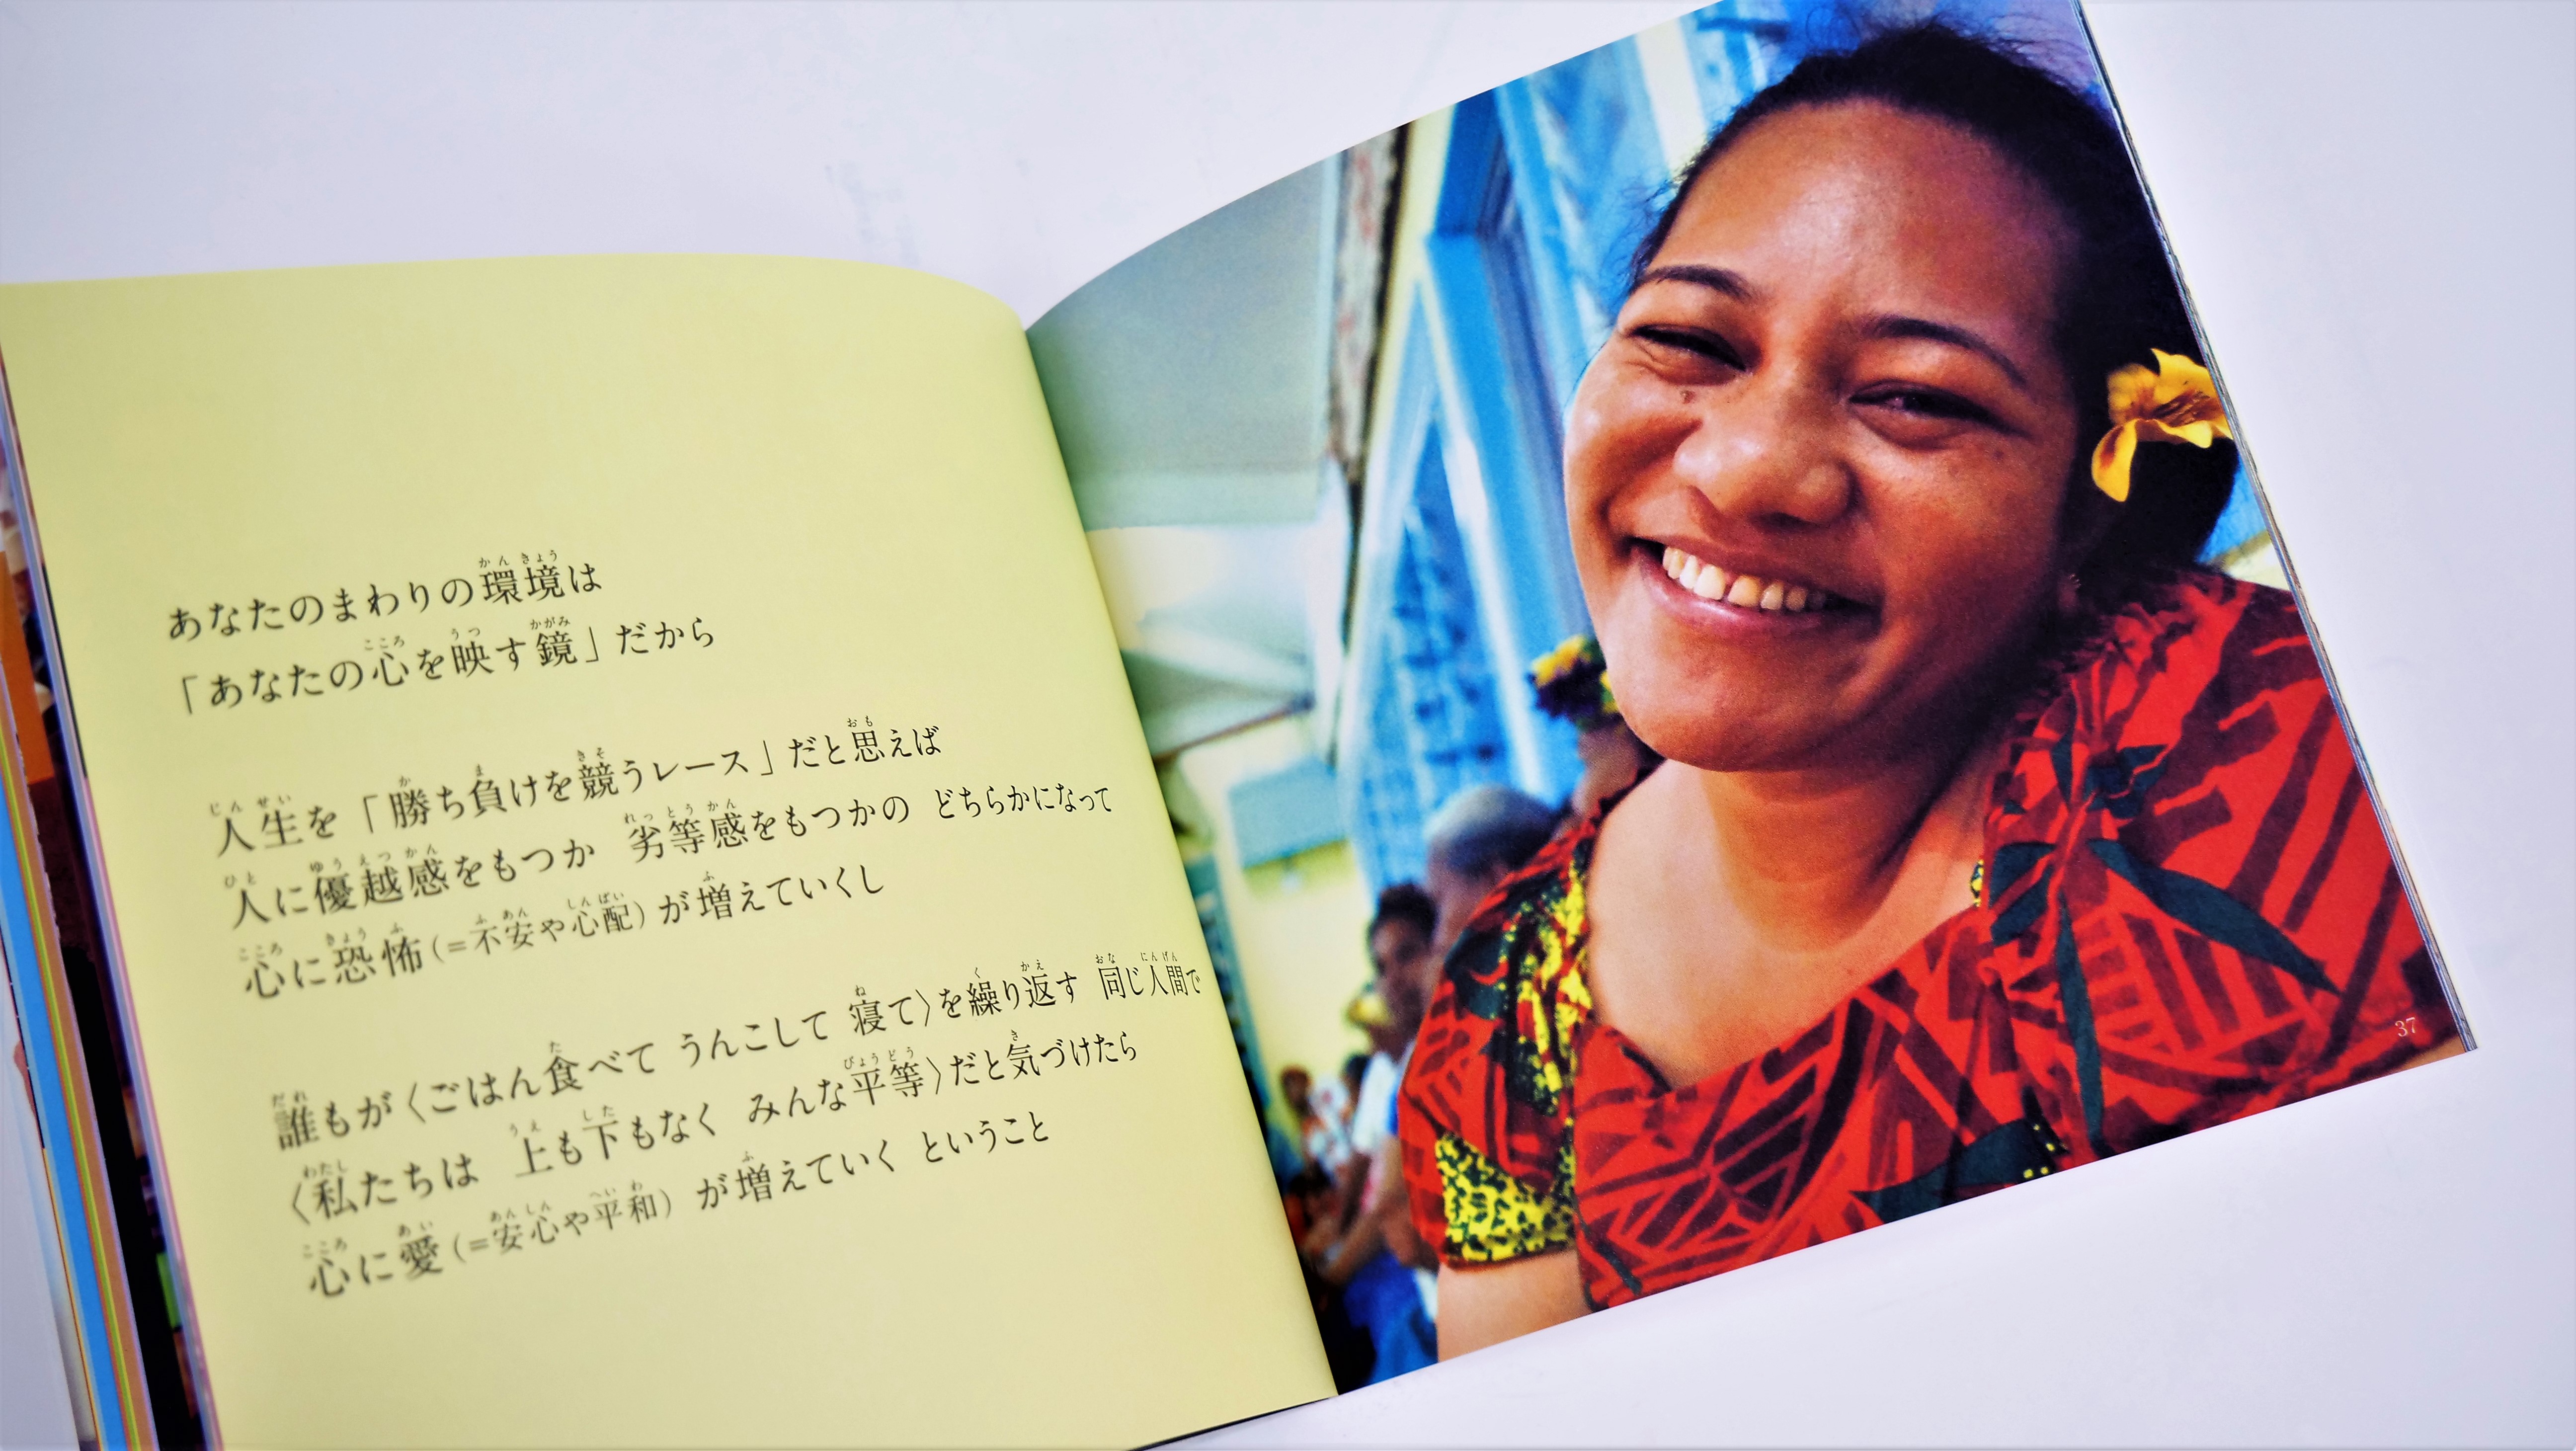 あなたのまわりの環境は
「あなたの心を映す鏡」だから
人生を「勝ち負けを競うレース」だと思えば
人に優越感をもつか 劣等感をもつかの どちらかになって
心に恐怖(=不安や心配)が増えていくし
誰もが〈ごはん食べて うんこして 寝て〉を繰り返す 同じ人間で
〈私たちは 上も下もなく みんな平等〉だと気づけたら
心に愛(=安心や平和)が増えていく ということ
37